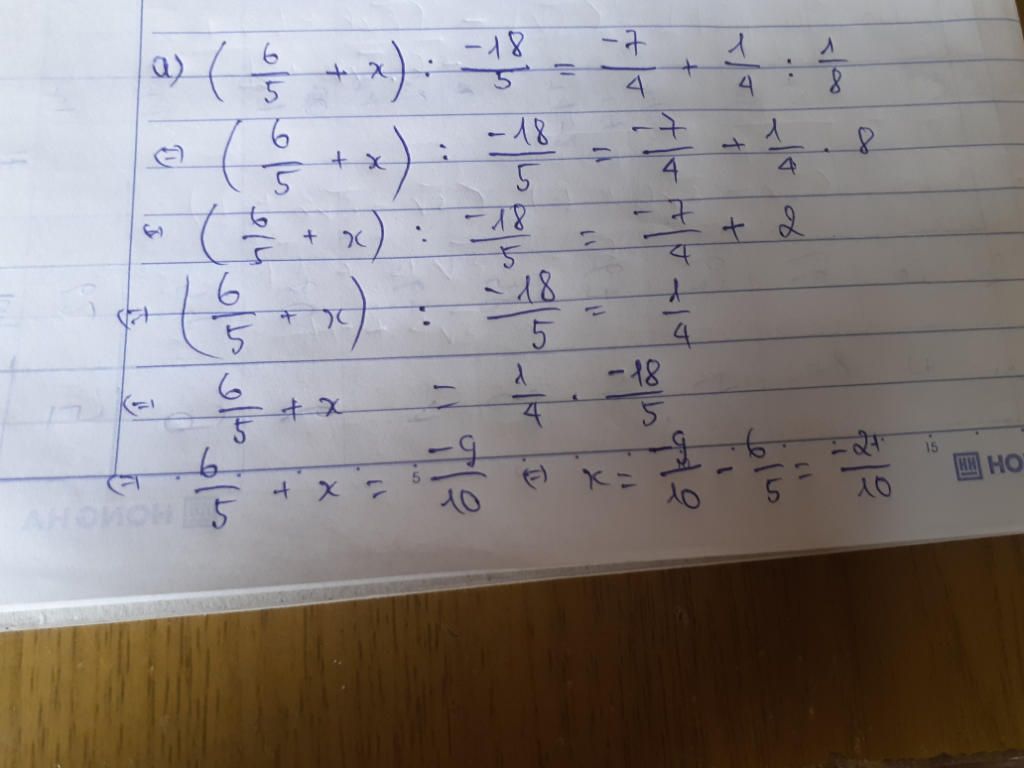 a) (6/5 + x) : -18/5 = -7/4 + 1/4 : 1/8
(=) (6/5 + x) : -18/5 = -7/4 + 1/4 . 8
(6/5 + x) : -18/5 = -7/4 + 2
(=) (6/5 + x) : -18/5 = 1/4
(=) 6/5 + x = 1/4 . -18/5
(=) 6/5 + x = -9/10 (=) x = -9/10 - 6/5 = -21/10
5
15
HO
HONG HA